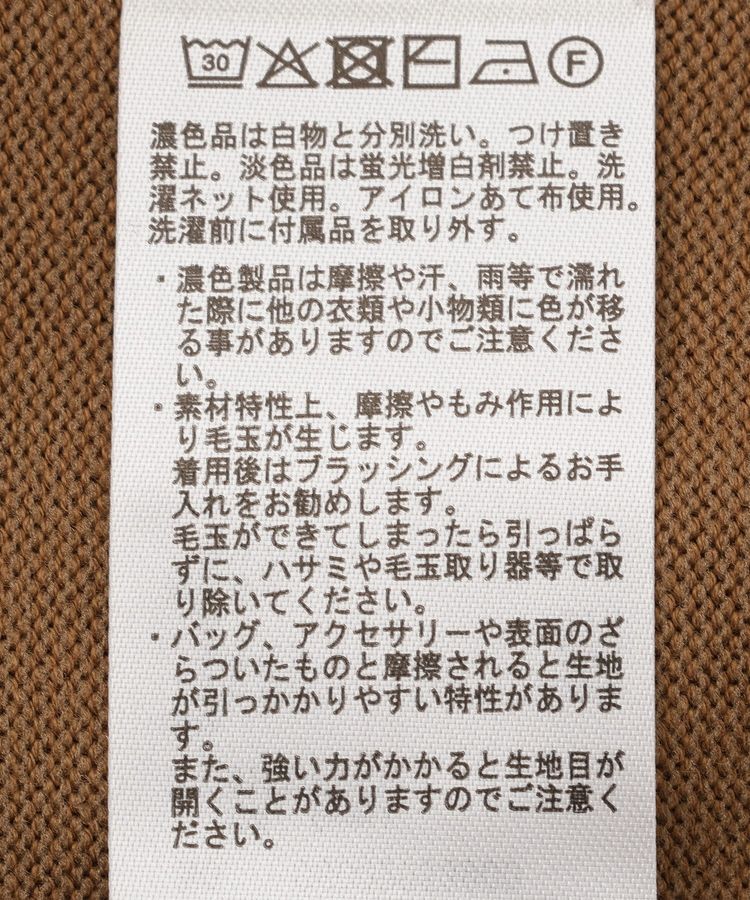 30 F
濃色品は白物と分別洗い。つけ置き
禁止。淡色品は蛍光増白剤禁止。洗
濯ネット使用。アイロンあて布使用。
洗濯前に付属品を取り外す。
・濃色製品は摩擦や汗、雨等で濡れ
た際に他の衣類や小物類に色が移
る事がありますのでご注意くださ
い。
・素材特性上、摩擦やもみ作用によ
り毛玉が生じます。
着用後はブラッシングによるお手
入れをお勧めします。
毛玉ができてしまったら引っぱら
ずに、ハサミや毛玉取り器等で取
り除いてください。
・バッグ、アクセサリーや表面のざ
らついたものと摩擦されると生地
が引っかかりやすい特性がありま
す。
また、強い力がかかると生地目が
開くことがありますのでご注意く
ださい。